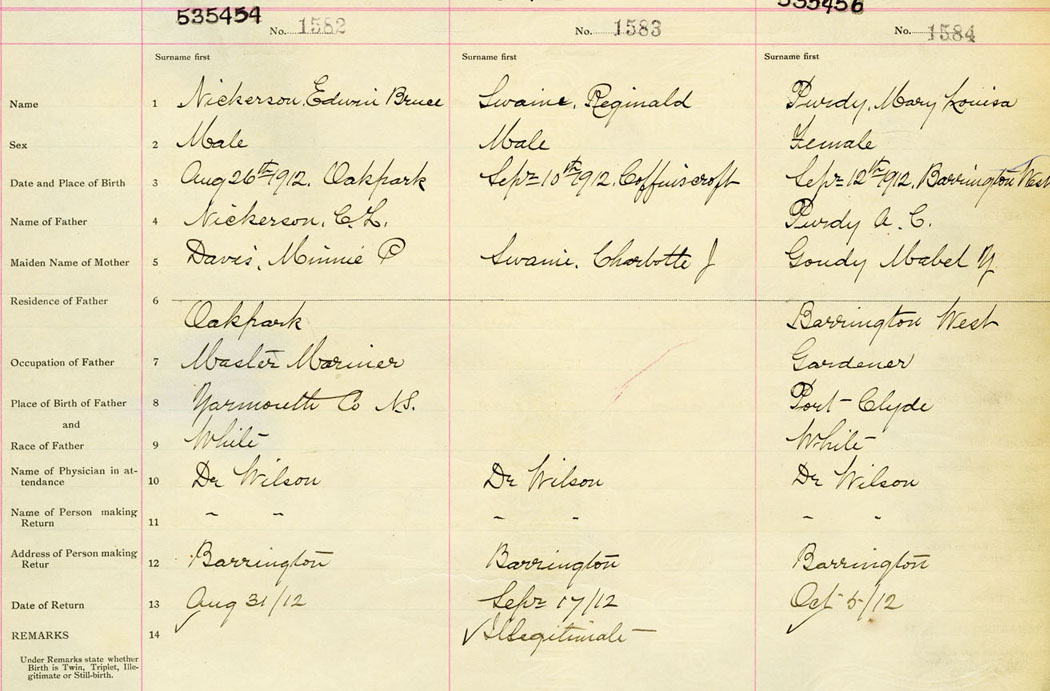 535454 535456
No. 1582 No. 1583 No. 1584
Surname first Surname first Surname first
Name 1 Nickerson, Edwin Bruce Swaine, Reginald Purdy, Mary Louisa
Sex 2 Male Male Female
Date and Place of Birth 3 Aug 26th 1912. Oakpark Sept 10th 1912. Coffinscroft Sept 12th 1912. Barrington West
Name of Father 4 Nickerson, C. L. Purdy A. C.
Maiden Name of Mother 5 Davis, Minnie P Swaine, Charlotte J Goudy Mabel
Residence of Father 6
Oakpark Barrington West
Occupation of Father 7 Master Mariner Gardener
Place of Birth of Father 8 Yarmouth Co N.S. Port Clyde
and
Race of Father 9 White White
Name of Physician in at-
tendance 10 Dr Wilson Dr Wilson Dr Wilson
Name of Person making
Return 11 " " " " " "
Address of Person making
Retur 12 Barrington Barrington Barrington
Date of Return 13 Aug 31/12 Sept 17/12 Oct 5/12
REMARKS 14 ✓ ✓ Illegitimate ✓
Under Remarks state whether
Birth is Twin, Triplet, Ille-
gitimate or Still-birth.